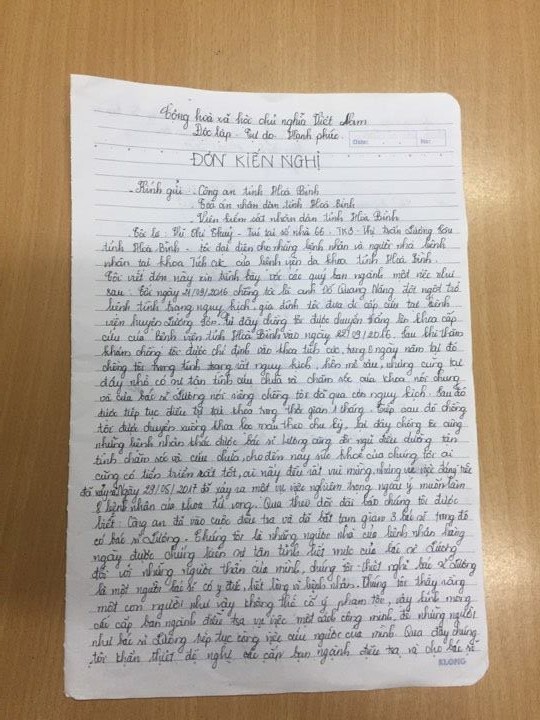 Cộng hoà xã hội chủ nghĩa Việt Nam
Độc lập - Tự do - Hạnh phúc
Date: No:
ĐƠN KIẾN NGHỊ
- Kính gửi - Công an tỉnh Hoà Bình
- Toà án nhân dân tỉnh Hoà Bình
- Viện kiểm sát nhân dân tỉnh Hoà Bình
Tôi là: Thị Thuỷ - Trú tại số nhà 66 - TK3 - Thị trấn Lương Sơn
tỉnh Hoà Bình - tôi đại diện cho những bệnh nhân và người nhà bệnh
nhân tại khoa Tích cực của bệnh viện đa khoa tỉnh Hoà Bình.
Tôi viết đơn này xin trình bày với các quý ban ngành một việc như
sau: Tối ngày 21/09/2016 chồng tôi là anh Đỗ Quang Năng đột ngột trở
bệnh tình trạng nguy kịch, gia đình tôi đưa đi cấp cứu tại Bệnh
viện huyện Lương Sơn. Từ đây chồng tôi được chuyển thẳng lên khoa cấp
cứu của Bệnh viện tỉnh Hoà Bình vào ngày 22/09/2016. Sau khi thăm
khám chồng tôi được chỉ định vào khoa tích cực, trong 5 ngày nằm tại đó
chồng tôi trong tình trạng rất nguy kịch, hôn mê sâu, nhưng cũng tại
đây nhờ có sự tận tình cứu chữa và chăm sóc của khoa nói chung
và của bác sĩ Lương nói riêng chồng tôi đã qua cơn nguy kịch. Sau đó
được tiếp tục điều trị tại khoa trong thời gian 1 tháng. Tiếp sau đó chồng
tôi được chuyển xuống khoa lọc máu theo chu kỳ, tại đây chồng tôi cùng
những bệnh nhân khác được bác sĩ Lương cùng đội ngũ điều dưỡng tận
tình chăm sóc và cứu chữa, cho đến nay sức khoẻ của chồng tôi ai
cũng có tiến triển rất tốt, ai nấy đều rất vui mừng, nhưng vụ việc đáng tiếc
đã xảy ra Ngày 29/05/2017 đã xảy ra một vụ việc nghiêm trọng ngoài ý muốn làm
8 bệnh nhân của khoa tử vong. Qua theo dõi đài báo chúng tôi được
biết: Công an đã vào cuộc điều tra và đã bắt tạm giam 3 bác sĩ trong đó
có bác sĩ Lương. Chúng tôi là những người nhà của bệnh nhân hàng
ngày được chứng kiến sự tận tình hết mực của bác sĩ Lương
đối với những người thân của mình, chúng tôi thiết nghĩ bác sĩ Lương
là một người bác sĩ có y đức, hết lòng vì bệnh nhân. Chúng tôi thấy rằng
một con người như vậy không thể cố ý phạm tội, vậy kính mong
các cấp ban ngành điều tra vụ việc một cách công minh, để những người
như bác sĩ Lương tiếp tục công việc cứu người của mình. Qua đây chúng
tôi khẩn thiết đề nghị các cấp ban ngành điều tra và cho bác sĩ
KLONG